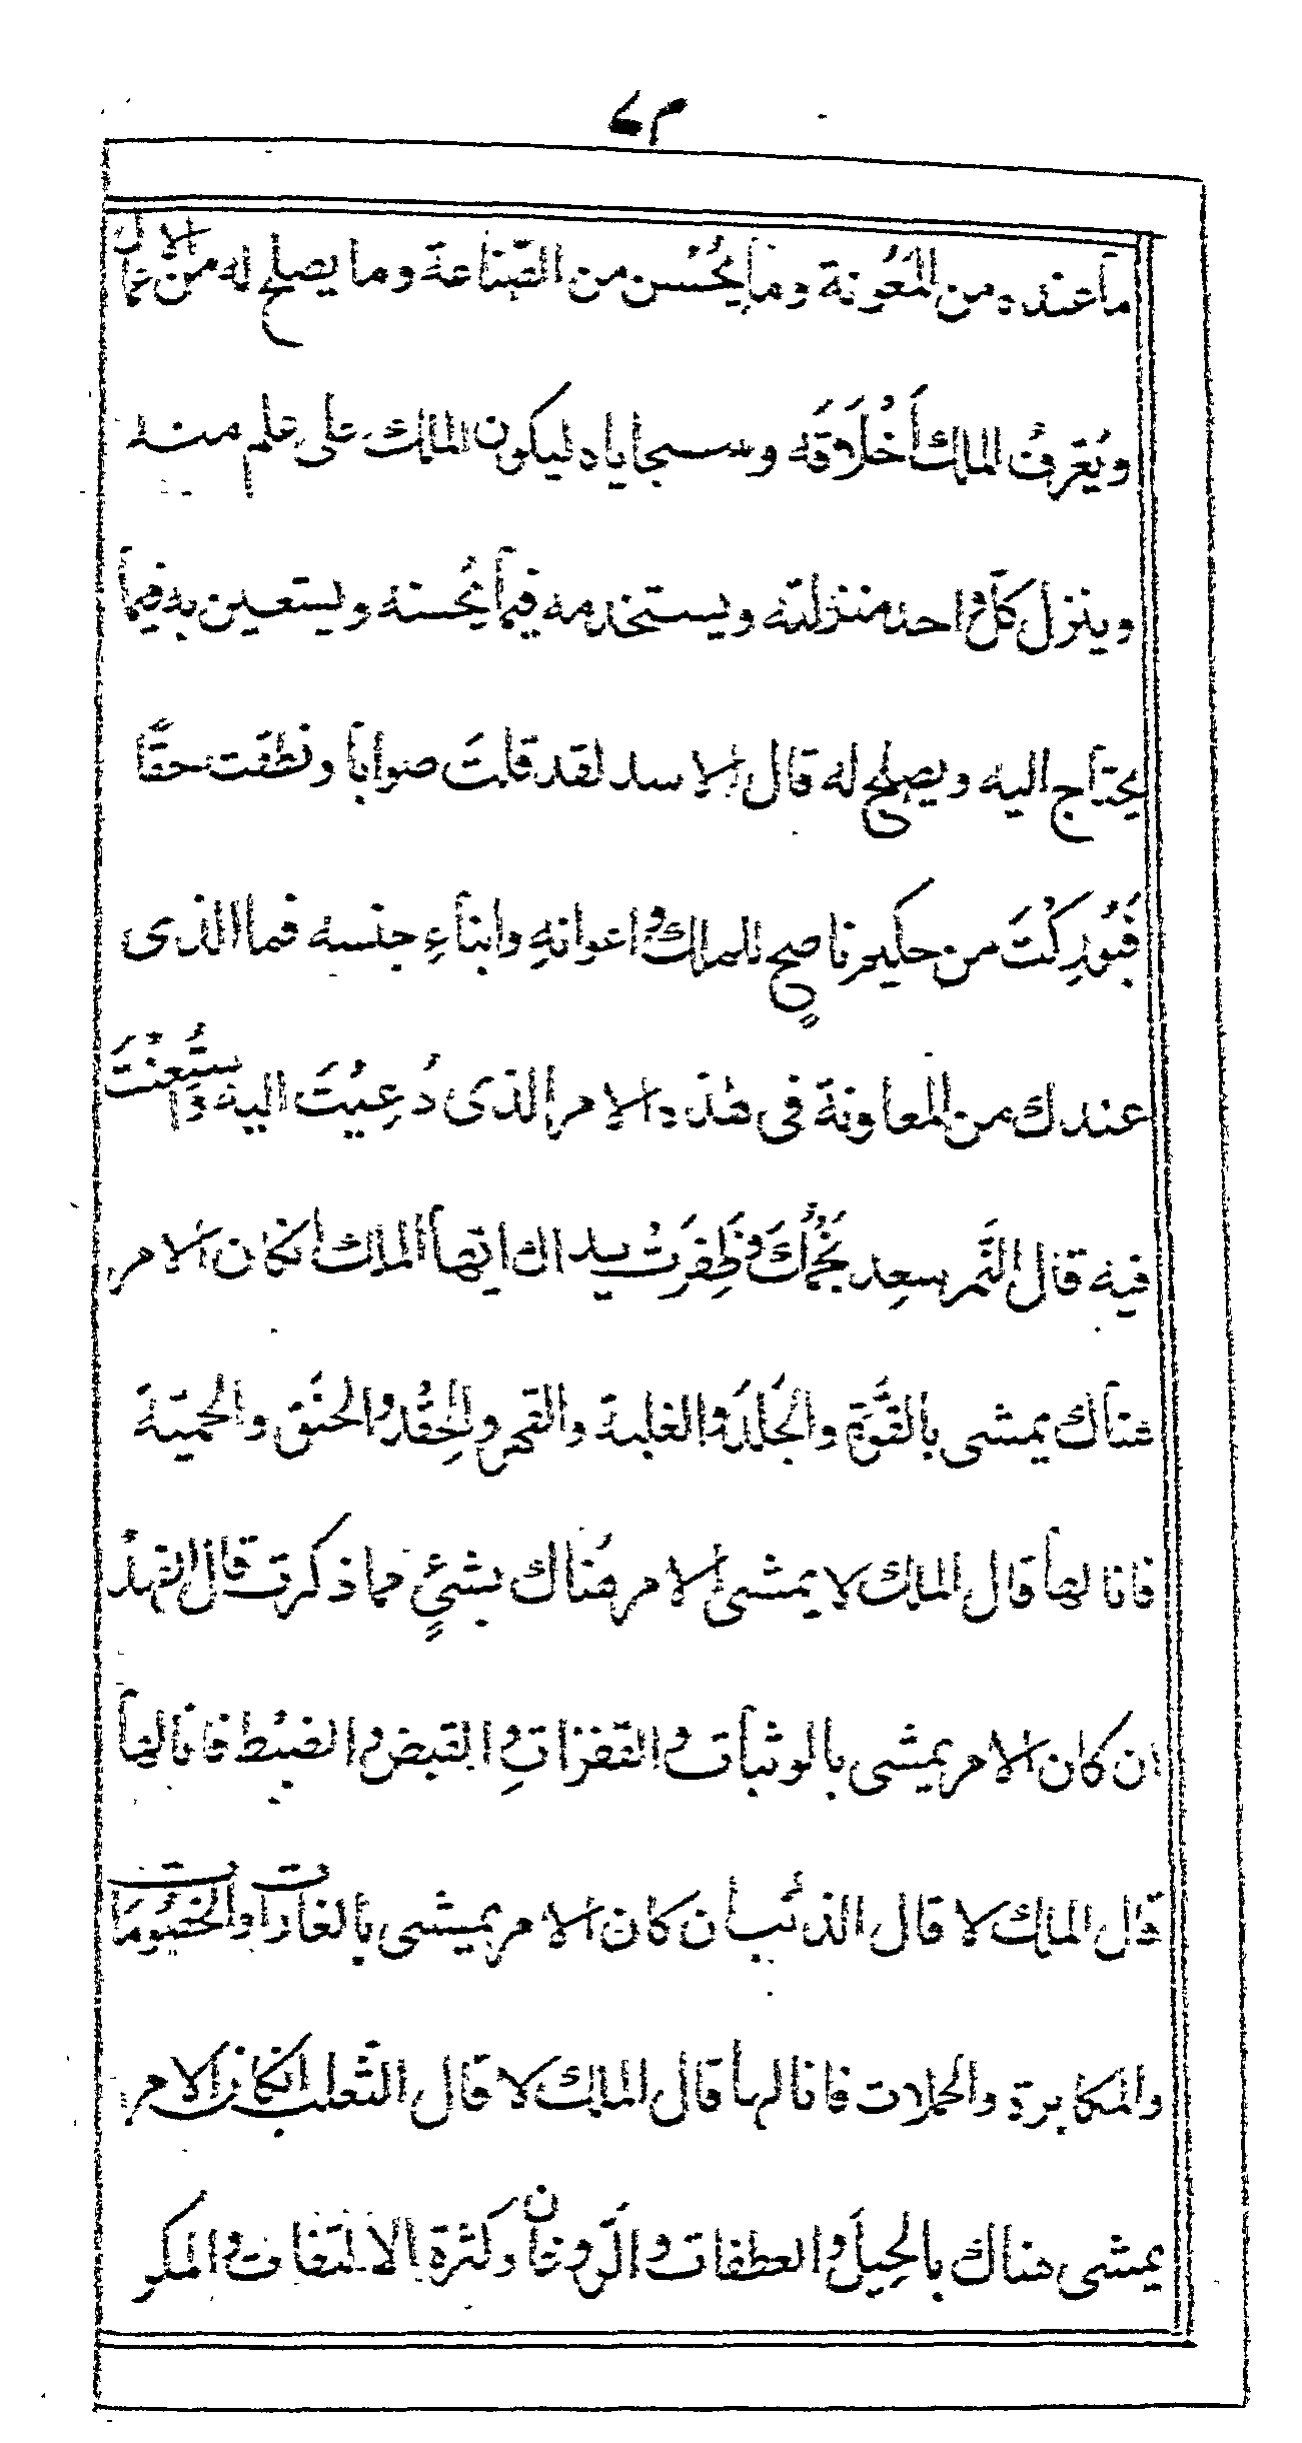 ما عنده من المَعُونة وما يُحْسن من الصّناعة وما يصلح له من الاعمال
ويُعَرفُ الملك أَخْلَاقَه وسجاياه ليكون الملك على علم منه
وينزل كلّ واحد منزلته ويستخدمه فيما يُحسنه ويستعين به فيما
يحتاج اليه ويصلح له قال الاسد لقد قلتَ صوابا ونطقت حقّا
فَبُورِكْتَ من حكيم ناصح للملك واعوانهِ وابناءِ جنسه فما الذى
عندك من المعاونة فى هذه الامر الذى دُعِيْتَ اليه واستُعِنْتَ
فيه قال النَّمر سعِد نَجْمُكَ وظَفِرَتْ يداك ايّها الملك انكان الامر
هناك يمشى بالقُوّة والجَلَدَ والغلبة والقهر والحِقْد والحنَق والحميّةَ
فانا لها قال الملك لا يمشى الامر هُناك بشيءٍ مما ذكرت قال الفهدُ
ان كان الامر يمشى بالوثبات والقفزاتِ والقبض والضبْط فانا لها
قال الملك لا قال الذئب ان كان الامر يمشى بالغارات والخصُومَات
والمكابرة والحملات فانا لها قال الملك لا قال الثّعلب انكان الامر
يمشى هناك بالحِيلَ والعطفات والرَّوغان وكثرة الالتفات والمكر